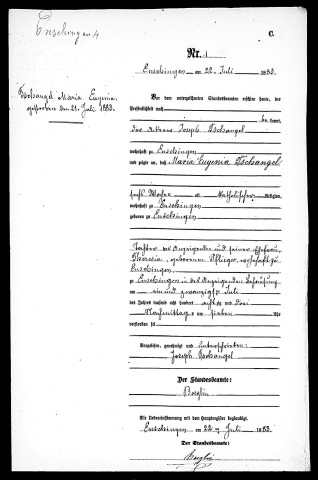 Enschingen 4
C.
Nr. 4
Enschingen am 22. Juli 1883.
Tschangel Maria Eugenia,
gestorben den 21. Juli 1883.
Vor dem unterzeichneten Standesbeamten erschien heute, der
Persönlichkeit nach
be kannt,
der Ackerer Joseph Tschangel
wohnhaft zu Enschingen
und zeigte an, daß Maria Eugenia Tschangel
sechs Wochen alt, katholischer Religion,
wohnhaft zu Enschingen
geboren zu Enschingen
Tochter des Anzeigenden und seiner Ehefrau
Theresia, geborenen Pflieger, wohnhaft zu
Enschingen,
zu Enschingen in des Anzeigenden Behausung
am ein und zwanzigsten Juli
des Jahres tausend acht hundert achtzig und drei
Nachmittags um sieben Uhr
verstorben sei
Vorgelesen, genehmigt und unterschrieben
Joseph Tschangel
Der Standesbeamte:
Die Uebereinstimmung mit dem Hauptregister beglaubigt.
Enschingen am 22ten Juli 1883.
Der Standesbeamte: